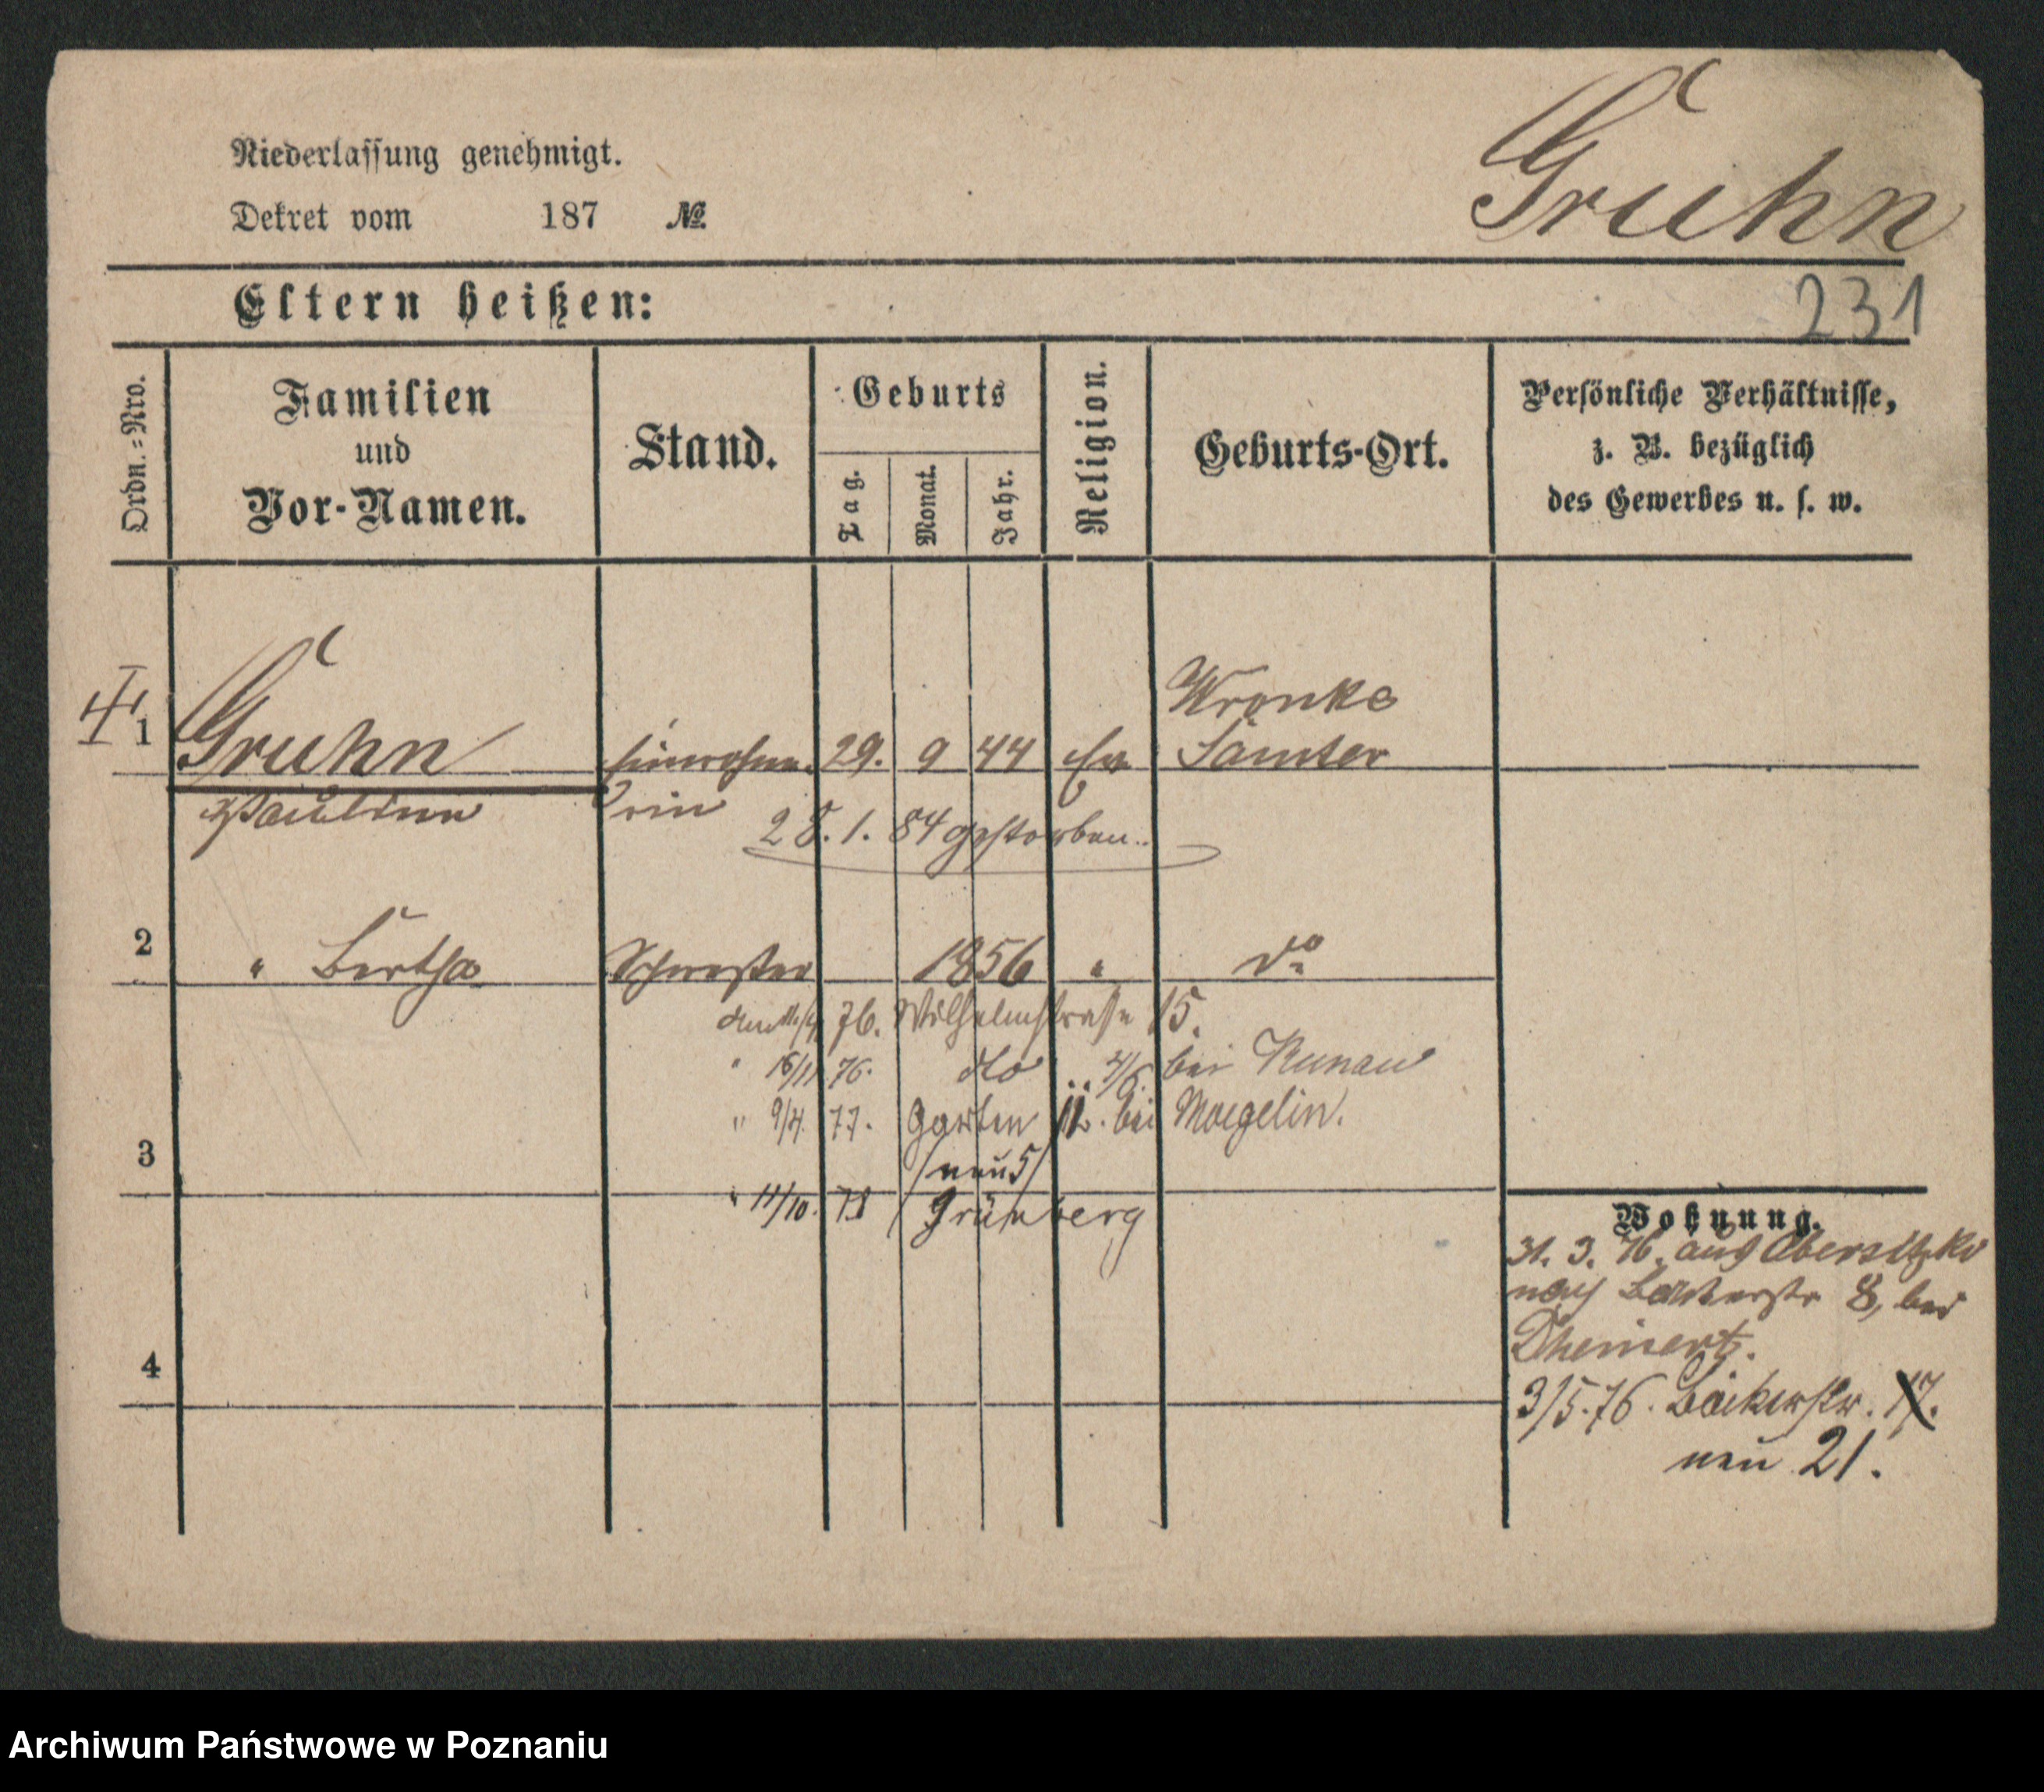 Gruhn
Niederlassung genehmigt.
Dekret vom 187 №
Eltern heißen:
231
Ordn.=Nro.
Familien
und
Vor-Namen.
Stand.
Geburts
Tag.
Monat.
Jahr.
Religion.
Geburts-Ort.
Persönliche Verhältnisse,
z. B. bezüglich
des Gewerbes u. s. w.
Wronke
1 Gruhn Einwohne 29. 9 44 Samter
Pauline rin
28. 1. 84 gestorben.
2 " Bertha Schwester 1856 " do
76. Wilhelmstrasse 15.
" 16/11 76. do 4/6. bei Kunau
" 9/4. 77. Garten 12. bei Maegelin.
3
/neu 5/
" 11/10. 78 Grünberg
Wohnung.
31. 3. 76. aus Obersitzko
nach 8, bei
Dheinert.
4
3/5.76. Bäckerstr. 17.
neu 21.
Archiwum Państwowe w Poznaniu